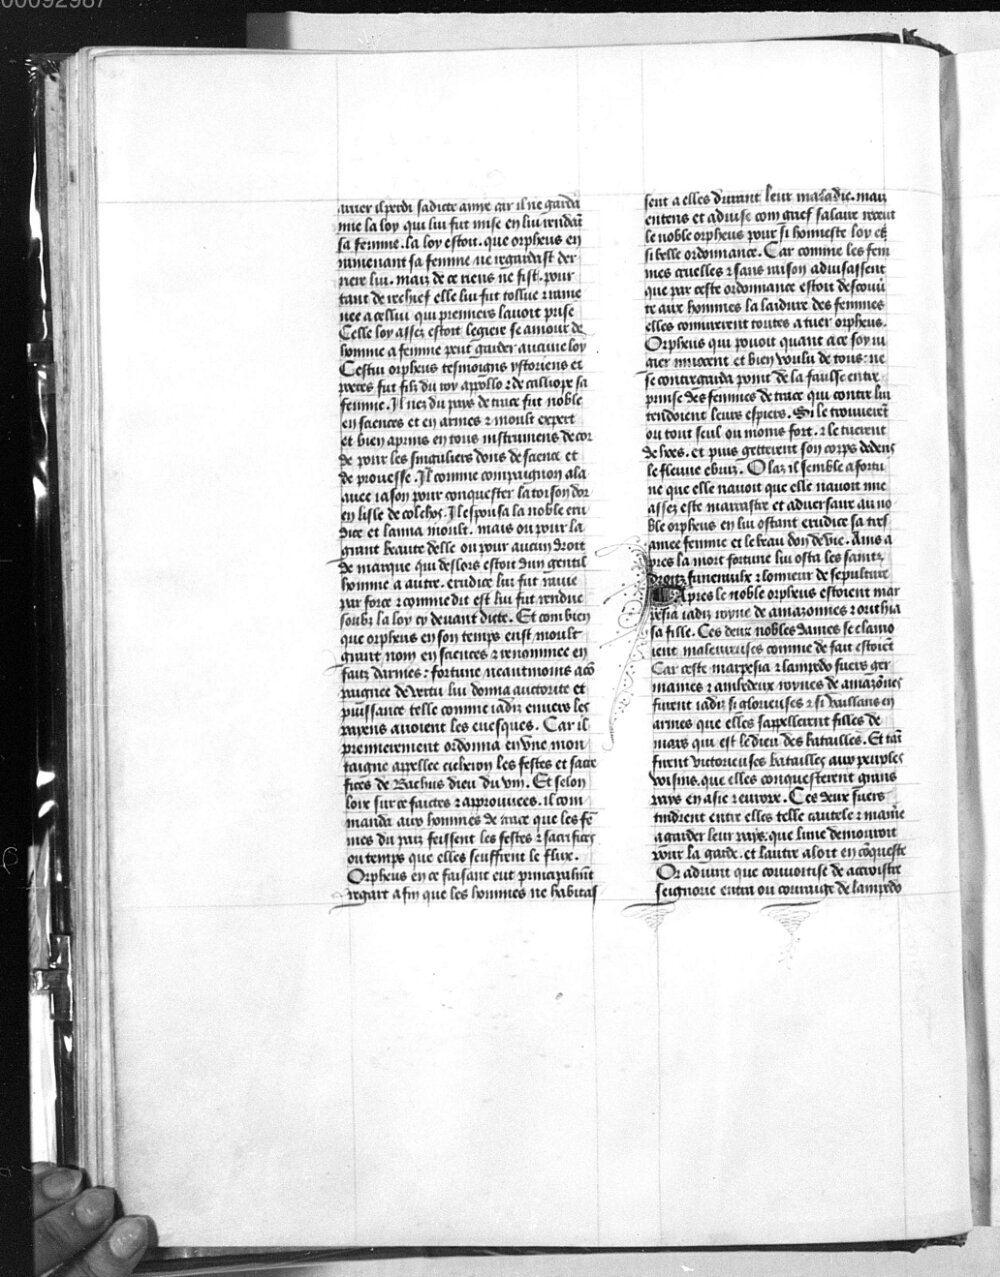 00092987
auoir il perdi sadicte amye car il ne garda
mie la loy qui lui fut mise en lui rendāt
sa femme. la loy estoit. que orpheus en
ramenant sa femme ne regardast der
riere lui. maiz de ce riens ne fist. pour
tant de rechief elle lui fut tollue ⁊ rame
nee a cellui qui premiers lauoit prise
Celle loy assez estoit legiere se amour de
homme a femme peut garder aucune loy
Cestui orpheus tesmoigns ystoriens et
poetes fut filz du roy apollo ⁊ de calliope sa
femme. Il nez du pays de trace fut noble
en sciences et en armes ⁊ moult expert
et bien apprins en tous instrumens de cor
de pour les singuliers dons de science et
de prouesse. Il comme compaignon ala
auec iason pour conquester la toison dor
en lisle de colchos. Il espousa la noble eru
dice et lama moult. mais ou pour la
grant beaute delle ou pour aucun droit
de marque qui deslors estoit dun gentil
homme a autre. erudice lui fut rauie
par force ⁊ comme dit est lui fut rendue
soubz la loy cy deuant dicte. Et combien
que orpheus en son temps eust moult
grant nom en sciences ⁊ renommee en
faiz darmes: fortune neantmoins acō
paignee de vertu lui donna auctorite et
puissance telle comme iadiz enuers les
payens auoient les euesques. Car il
premierement ordonna en vne mon
taigne appellee citheron les festes et sacri
fices de Bachus dieu du vin. Et selon
loix sur ce faictes ⁊ approuuees. il com
manda aux hommes de trace que les fē
mes du paiz feissent les festes ⁊ sacrifices
ou temps que elles seuffrent le flux.
Orpheus en ce faisant eut principalmēt
regart afin que les hommes ne habitas
sent a elles durant leur maladie. maiz
entens et aduise com grief salaire receut
le noble orpheus pour si honneste loy et
si belle ordonnance. Car comme les fem
mes cruelles ⁊ sans raison aduisassent
que par ceste ordonnance estoit descouū
te aux hommes la laidure des femmes
elles coniurerent toutes a tuer orpheus.
Orpheus qui pouoit quant a ce soy iu
gier innocent et bien voulu de tous: ne
se contregarda point de la faulse entre
prinse des femmes de trace qui contre lui
tendoient leurs espiers. Si le trouuerēt
ou tout seul ou moins fort. ⁊ le tuerent
de hoes. et puis getterent son corps dedens
le fleuue ebruz. Olaz il semble a fortu
ne que elle nauoit que elle nauoit mie
assez este marrastre et aduersaire au no
ble orpheus en lui ostant erudice sa tres
amee femme et le beau don de vie. Ains a
pres la mort fortune lui osta les sainctz
droitz funeraulx ⁊ lonneur de sepulture
Apres le noble orpheus estoient mar
pesia iadiz royne de amazonnes ⁊ orithia
sa fille. Ces deux nobles dames se clamo
ient maleureuses comme de fait estoiēt
Car ceste marpesia ⁊ lampedo suers ger
maines ⁊ ambedeux roynes de amazōnes
furent iadiz si glorieuses ⁊ si vaillans en
armes que elles sappellerent filles de
mars qui est le dieu des batailles. Et tāt
furent victorieuses batailles aux peuples
voisins. que elles conquesterent grans
pays en asie ⁊ europe. Ces deux suers
tindrent entre elles telle cautele ⁊ maniere
a garder leur pays. que lune demouroit
pour la garde. et lautre aloit en cōqueste
Or aduint que conuoitise de accroistre
seignorie entra ou courage de lampedo